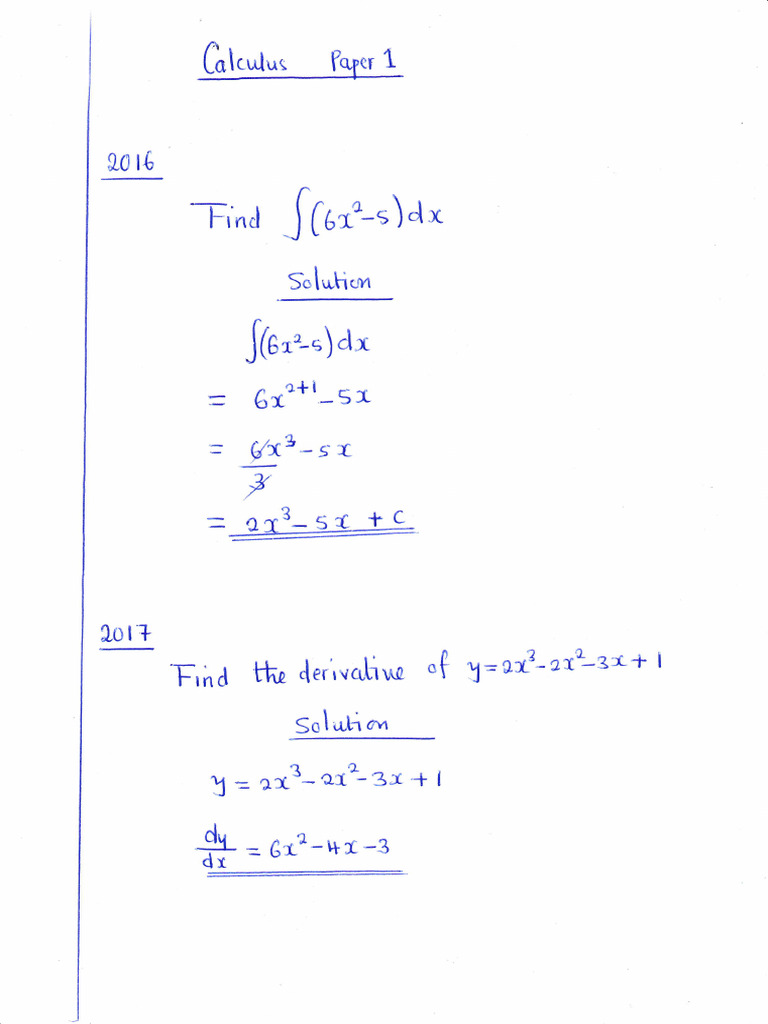 Calculus Paper 1
2016
Find ∫(6x²-5)dx
Solution
∫(6x²-5)dx
= 6x²⁺¹-5x
= 6x³/3 - 5x
= 2x³-5x + c
2017
Find the derivative of y=2x³-2x²-3x+1
Solution
y = 2x³-2x²-3x+1
dy/dx = 6x²-4x-3